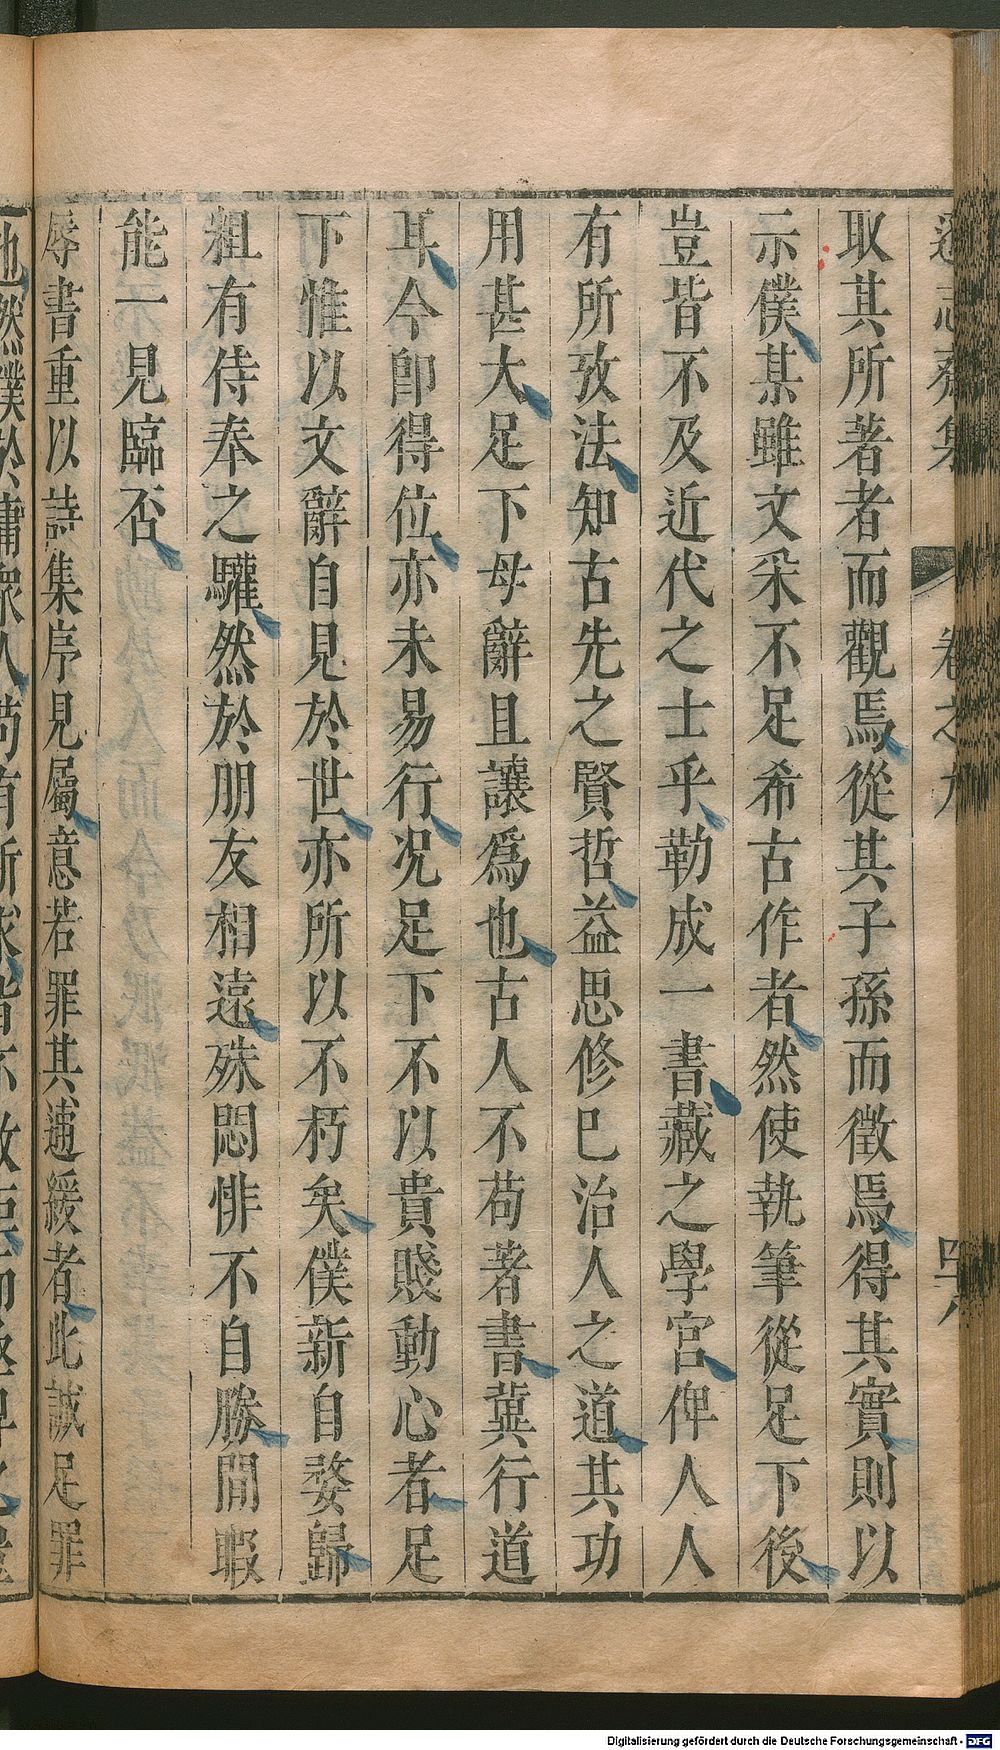 遜志齋集 卷之九 四八
取其所著者而觀焉從其子孫而徵焉得其實則以
示僕某雖文采不足希古作者然使執筆從足下後
豈皆不及近代之士乎勒成一書藏之學宫俾人人
有所攷法知古先之賢哲益思修巳治人之道其功
用甚大足下毋辭且讓爲也古人不苟著書冀行道
耳今卽得位亦未易行况足下不以貴賤動心者足
下惟以文辭自見於世亦所以不朽矣僕新自婺歸
粗有侍奉之驩然於朋友相遠殊悶悱不自勝間暇
能一見臨否
辱書重以詩集序見屬意若罪其逋緩者此誠足罪
也然僕於庸衆人苟有所求皆不敢拒
Digitalisierung gefördert durch die Deutsche Forschungsgemeinschaft - DFG